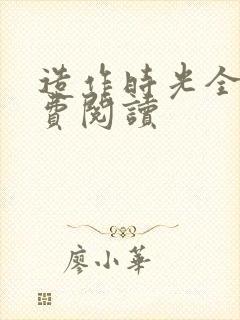 造作時光全
費閱讀
廖小華